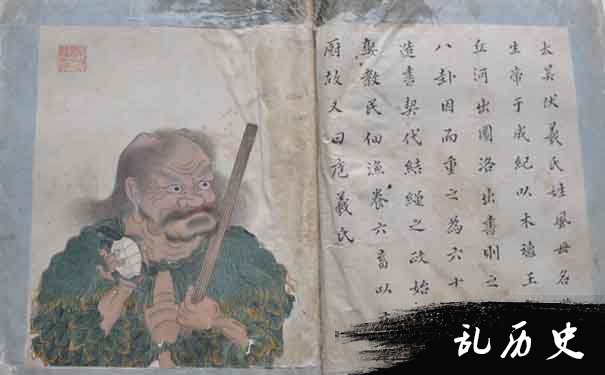 太昊伏羲氏姓風母名
生帝于成紀以木德王
河出圖洛出書則之
八卦因而重之為六十
造書契代結繩之政始
娶教民佃漁養六畜以
廚故又曰庖羲氏
乱历史